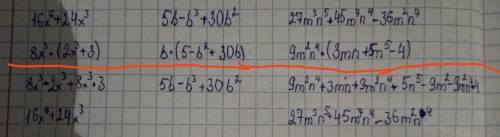 16x⁶+24x³ 5b-b³+30b² 27m³n⁵+45m⁴n⁴-36m²n⁴
8x³·(2x³+3) b·(5-b²+30b) 9m²n⁴·(3mn+5n⁵-4)
8x³·2x³+8x³·3 5b-b³+30b² 9m²n⁴+3mn+9m²n⁴+5n⁵-9m²-9²n⁴4
16x⁶+24x³ 27m³n⁵+45m⁴n⁴-36m²n⁴